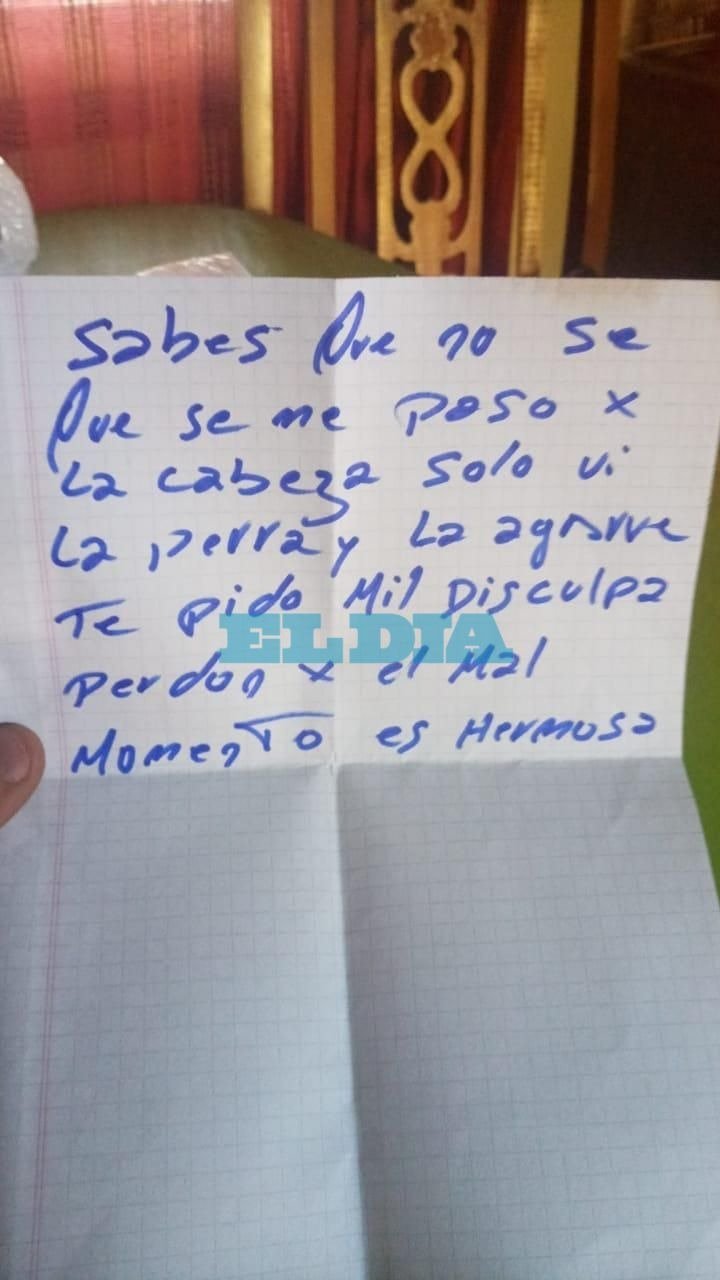 Sabes Que no se
Que se me paso x
La cabeza solo vi
La perra y La agarre
Te pido Mil Disculpa
EL DIA
perdon x el Mal
Momento es Hermosa